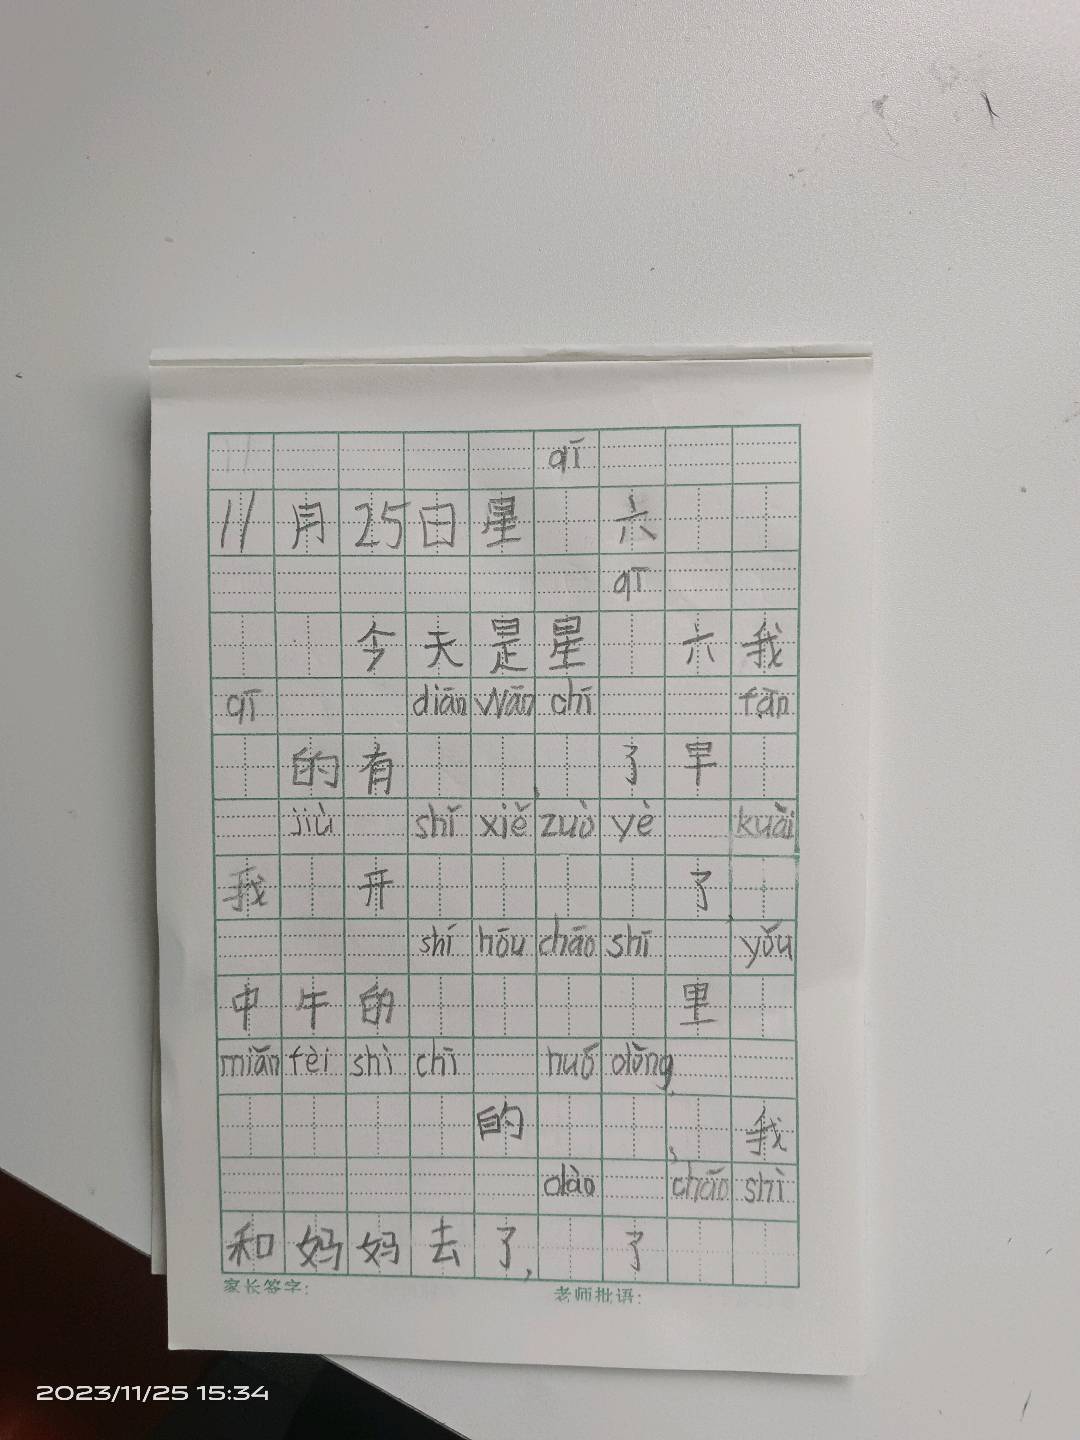 qī
11月25日星六
qī
今天是星六我
qī diǎn wǎn chī fàn
的有了早
jiù shǐ xiě zuò yè kuài
我开了,
shí hōu chāo shī yǒu
中午的里
miǎn fèi shì chī huó dòng,
的,我
dào chāo shì
和妈妈去了,了
家长签字: 老师批语:
2023/11/25 15:34